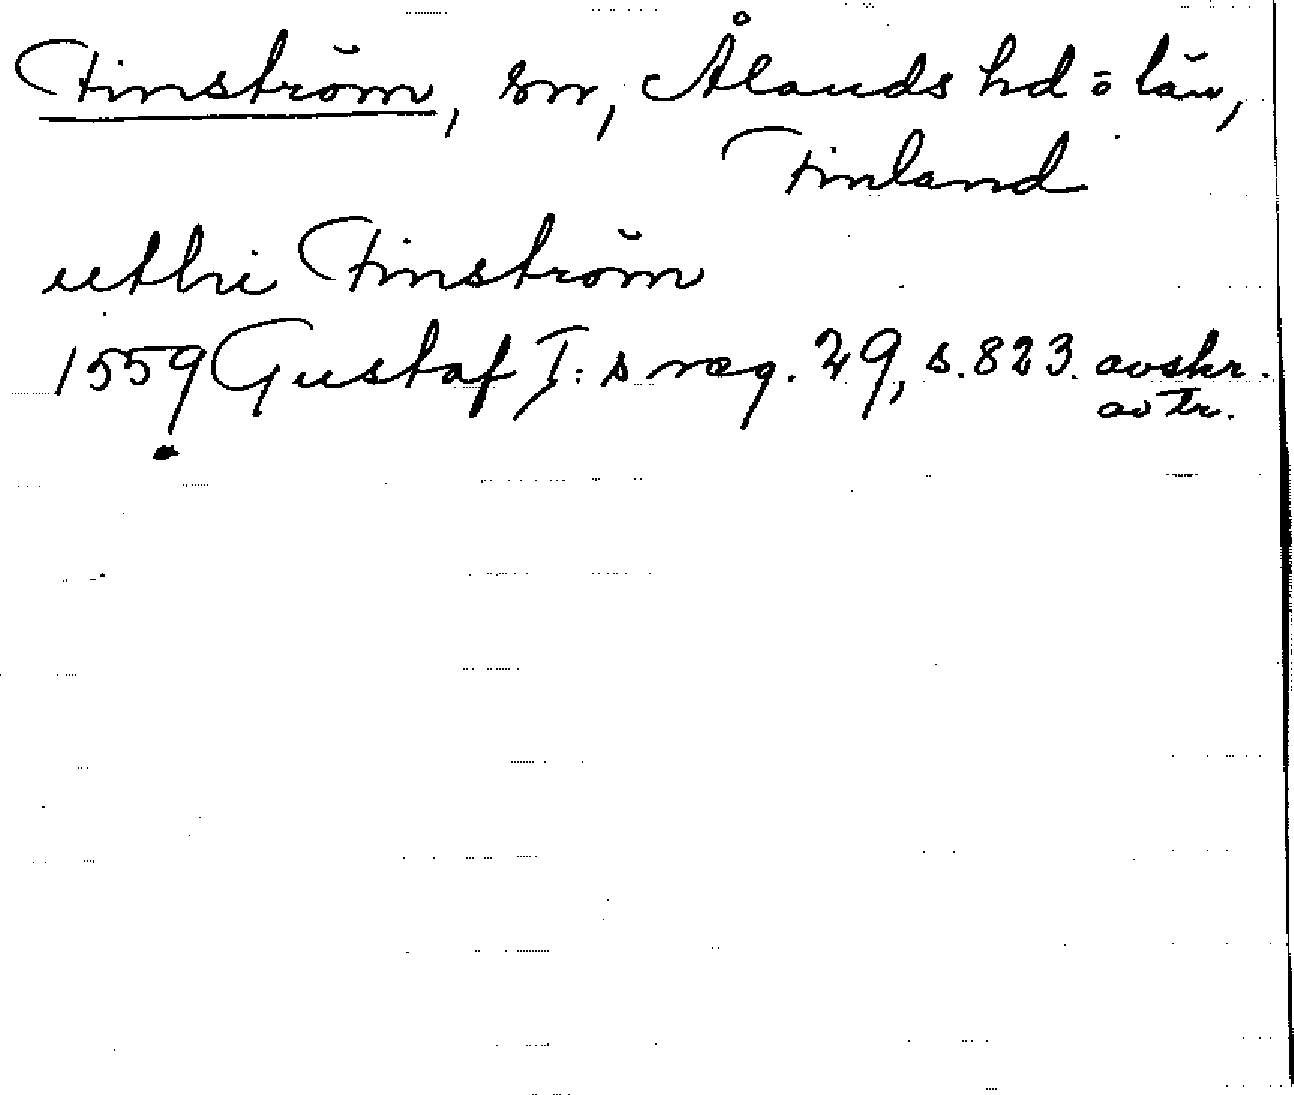 Finström, sn, Ålands hd o län,
Finland
uthi Finström
1559 Gustaf I:s reg. 29, s. 823. avskr.
av tr.